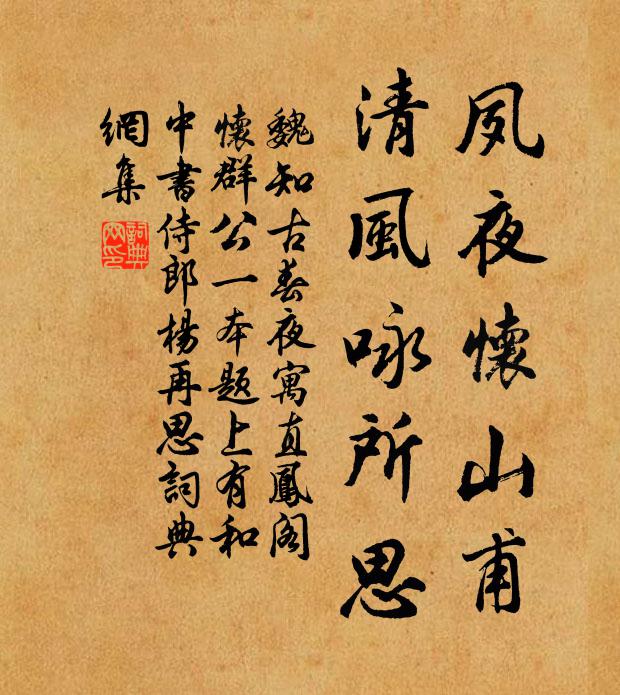 夙夜懷山甫
清風咏所思
魏知古春夜寓直鳳閣
懷群公一本題上有和
中書侍郎楊再思詞典
網集
詞典
网印